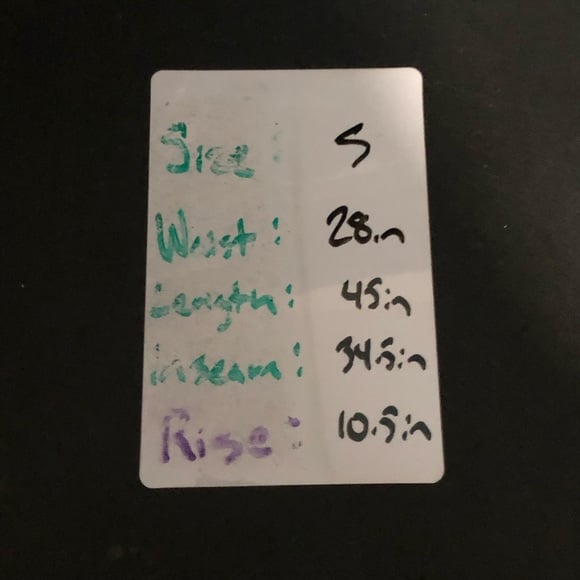 Size: S
Waist: 28in
Length: 45in
inseam: 34.5in
Rise: 10.5in